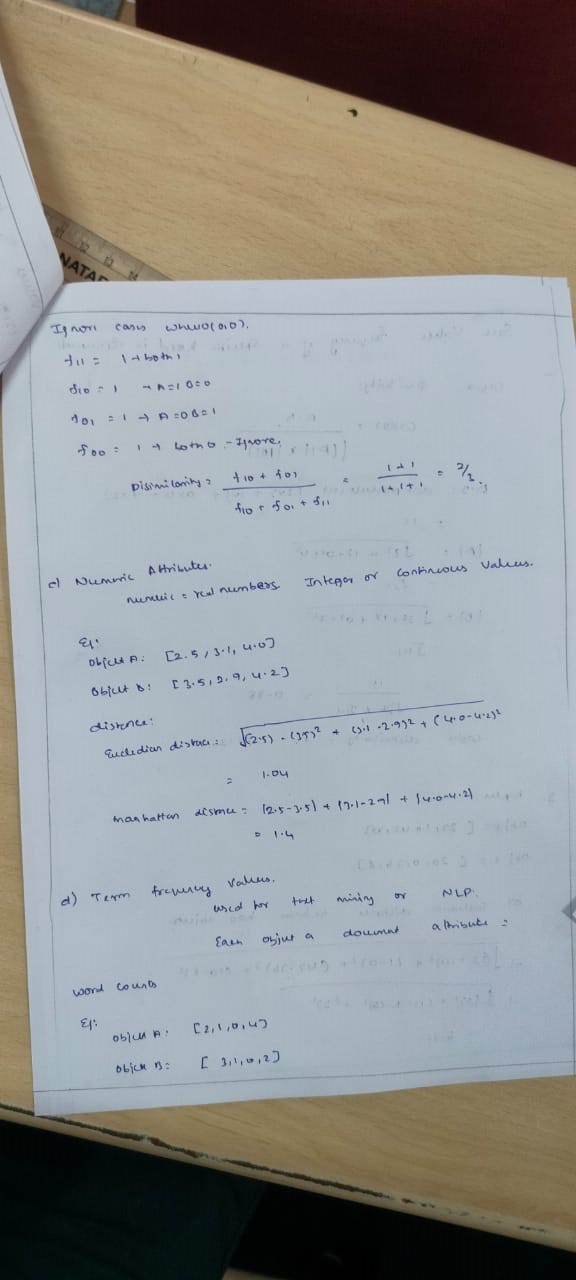 NATAR
11 12 13 14
Ignore cases where (0,0).
f11 = 1 → both 1
f10 = 1 → A=1 B=0
f01 = 1 → A=0 B=1
f00 = 1 → both 0 - Ignore.
Disimilarity = f10 + f01 / f10 + f01 + f11 = 1+1 / 1+1+1 = 2/3.
c) Numeric Attributes.
numeric = real numbers. Integer or continuous values.
Eg:
Object A: [2.5, 3.1, 4.0]
Object B: [3.5, 2.9, 4.2]
distence:
Eucledian distnace: √(2.5) - (3.5)² + (3.1 - 2.9)² + (4.0-4.2)²
= 1.04
Manhattan distnce = |2.5-3.5| + |3.1-2.9| + |4.0-4.2|
= 1.4
d) Term frequency values.
used for text mining or NLP.
Each object a document attribute =
word counts
Eg:
Object A: [2,1,0,4]
Object B: [3,1,0,2]